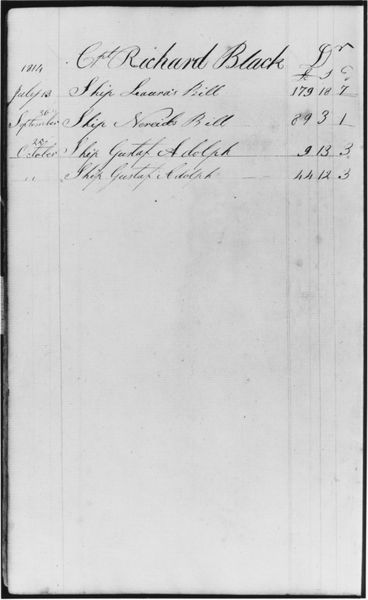 Cpt Richard Black Dr
1814 £ S d
July 13 Ship Laura's Bill 179 18 7
September 20th Ship Nereid's Bill 89 3 1
October 25th Ship Gustaf Adolph 9 13 3
" Ship Gustaf Adolph 44 12 3